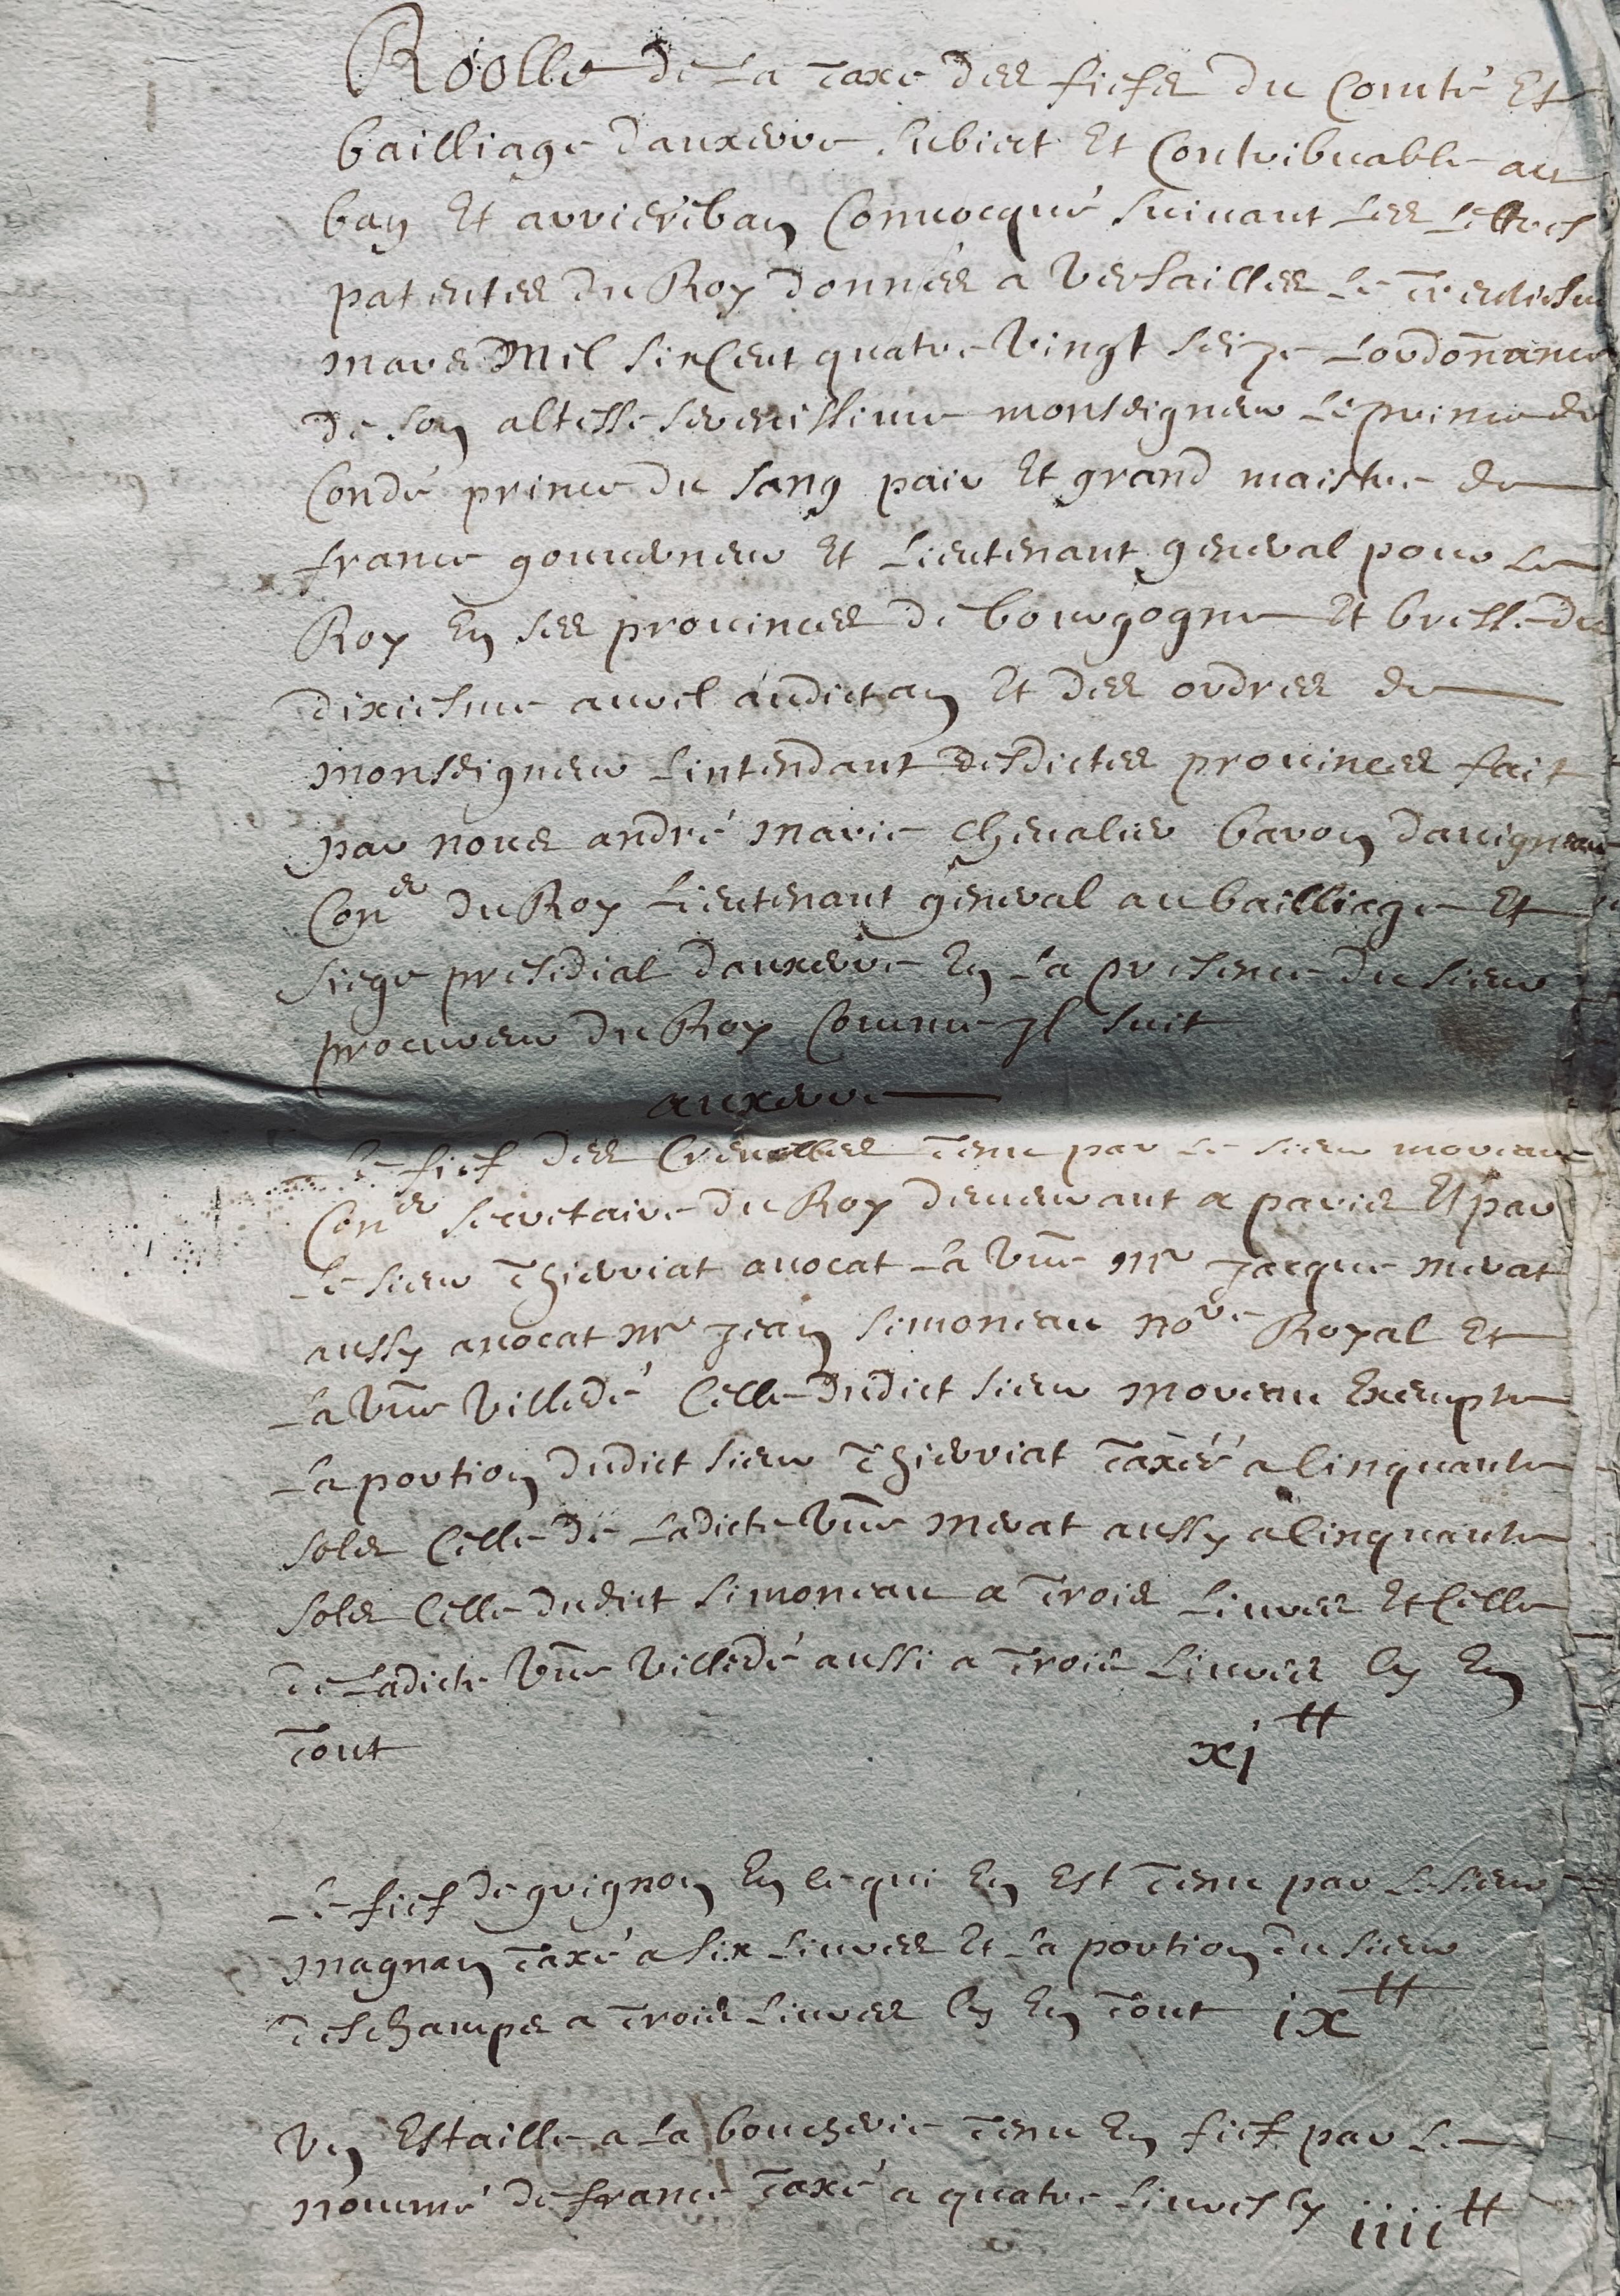 Roolle de la taxe des fiefs du Comté Et
bailliage dauxerre subiect Et Contribuable au
ban Et arriereban Convocqué suivant les lettres
patentes du Roy données a Versailles le
mars Mil six Cent quatre Vingt seize Lordonnance
de son altesse serenissime monseigneur le prince de
Condé prince du sang pair Et grand maistre de
france gouverneur Et Lieutenant general pour le
Roy En ses provinces de bourgogne Et bresse du
dixiesme avril audict an Et des ordres de
monseigneur Lintendant desdictes provinces fait
par nous andré marie chevalier baron davigneau
Con.er du Roy Lieutenant general au bailliage Et
siege presidial dauxerre En la presence du sieur
procureur du Roy Comme Jl suit
auxerre
Le fief des tenu par le sieur moreau
Con.er secretaire du Roy demeurant a paris Et par
le sieur Thierriat avocat La Vve Mr Jacque merat
aussy avocat Mr Jean simoneau no.re Royal Et
La Vve Villedé Celle dudict sieur moreau Exempte
La portion dudict sieur Thierriat Taxéé a Cinquante
sols Celle de Ladicte Vve merat aussy a Cinquante
sols Celle dudict simoneau a Trois Livres Et Celle
de Ladicte Vve Villedé aussi a Trois Livres Cy En
Tout xj tt
Le fief de grignon En ce qui En Est Tenu par le sieur
magnan Taxé a six Livres Et La portion du sieur
deschamps a Trois Livres Cy En Tout ix tt
Vn Estaille a La boucherie Tenu En fief par le
nommé de france Taxé a quatre Livres Cy iiii tt